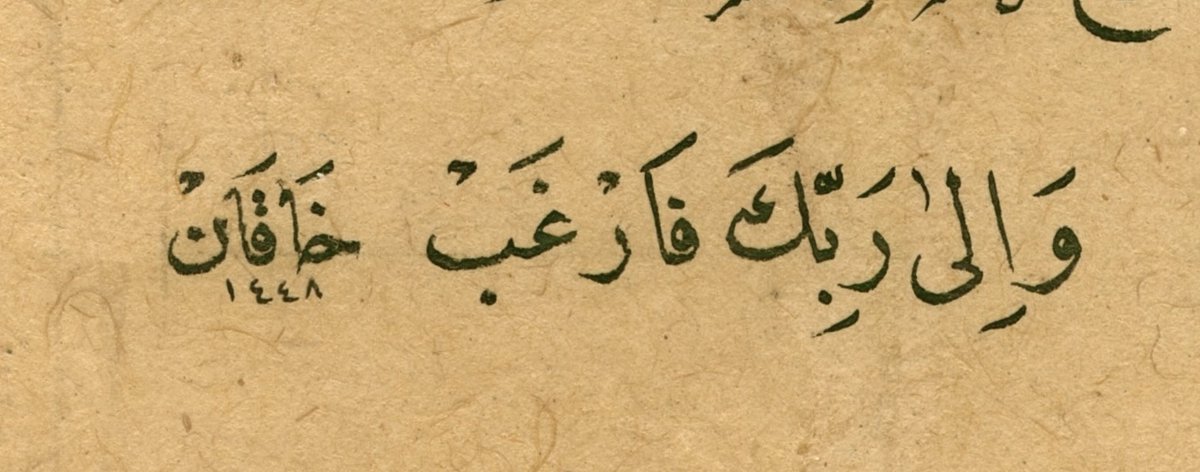 وَاِلٰى رَبِّكَ فَارْغَبْ خَاقَانْ
١٤٤٨